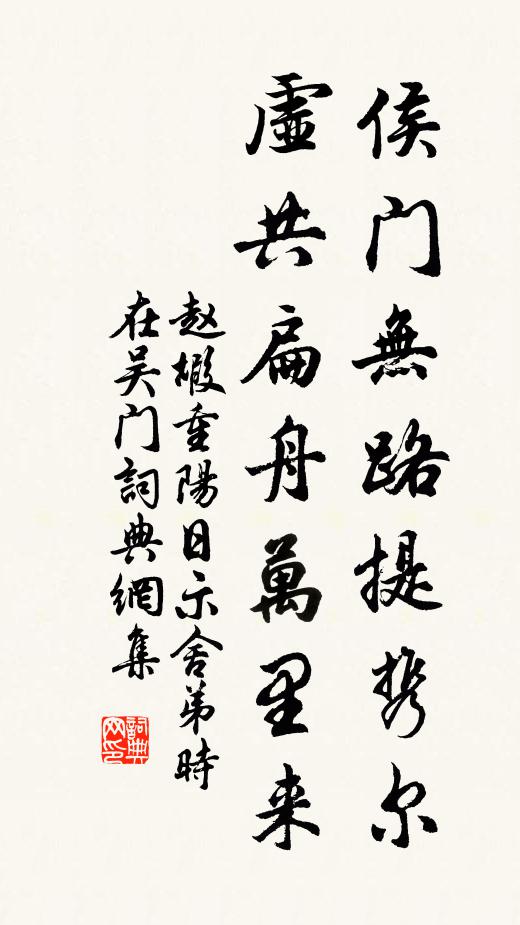 侯门無路提携尔
虚共扁舟萬里来
赵椴重陽日示舍弟時
在吴门詞典網集
詞典网印